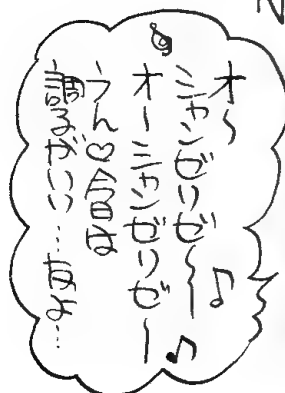 オ〜
シャンゼリゼ〜♪
オーシャンゼリゼー♪
うん♡今日は
調子がいい…なよ…